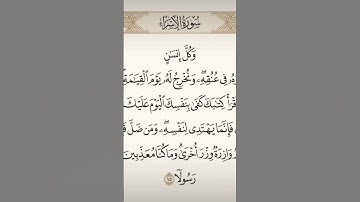 سُورَةُ الإِسْرَاءِ
وَكُلَّ إِنسَٰنٍ
فِى عُنُقِهِۦۖ وَنُخْرِجُ لَهُۥ يَوْمَ ٱلْقِيَٰمَةِ
كِتَٰبَكَ كَفَىٰ بِنَفْسِكَ ٱلْيَوْمَ عَلَيْكَ
فَإِنَّمَا يَهْتَدِى لِنَفْسِهِۦۖ وَمَن ضَلَّ
وَازِرَةٌ وِزْرَ أُخْرَىٰۗ وَمَا كُنَّا مُعَذِّبِينَ
رَسُولًا ١٥